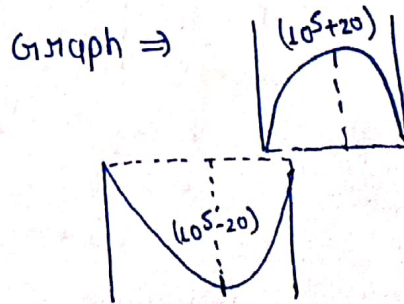 Graph ⇒
(10⁵+20)
(10⁵-20)